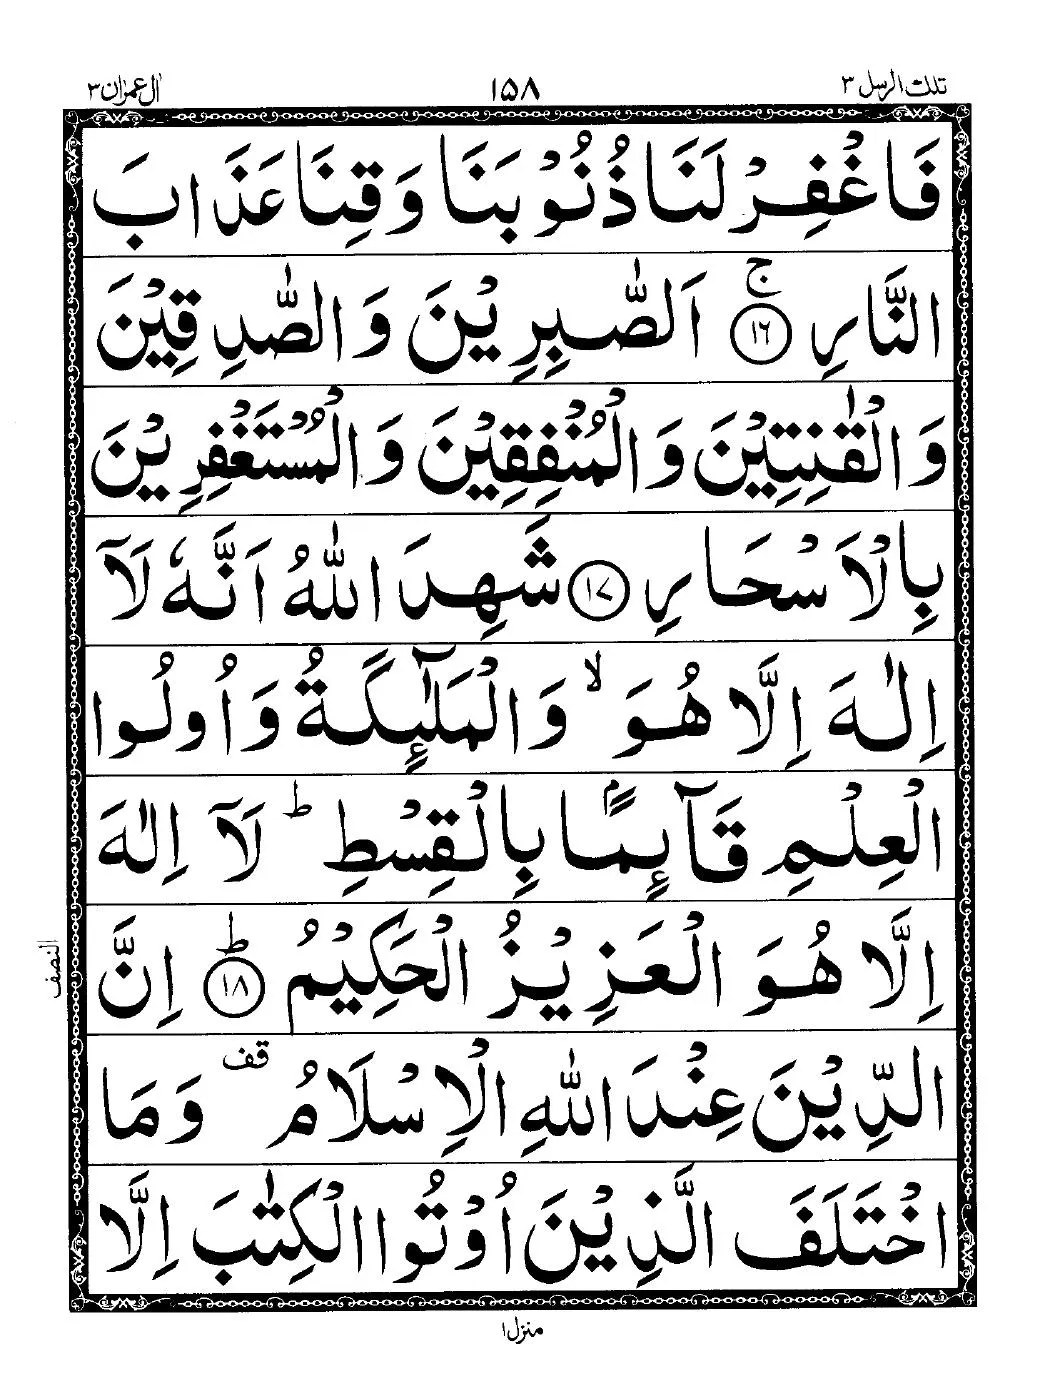 تلك الرسل ٣
١٥٨
اٰل عمرٰن ٣
فَاغْفِرْ لَنَا ذُنُوْبَنَا وَقِنَا عَذَابَ
النَّارِ ۚ ﴿١٦﴾ اَلصّٰبِرِيْنَ وَالصّٰدِقِيْنَ
وَالْقٰنِتِيْنَ وَالْمُنْفِقِيْنَ وَالْمُسْتَغْفِرِيْنَ
بِالْاَسْحَارِ ﴿١٧﴾ شَهِدَ اللّٰهُ اَنَّهٗ لَآ
اِلٰهَ اِلَّا هُوَ ۙ وَالْمَلٰٓئِكَةُ وَاُولُوا
الْعِلْمِ قَآئِمًۢا بِالْقِسْطِ ؕ لَآ اِلٰهَ
اِلَّا هُوَ الْعَزِيْزُ الْحَكِيْمُ ؕ ﴿١٨﴾ اِنَّ
النصف
الدِّيْنَ عِنْدَ اللّٰهِ الْاِسْلَامُ قف وَمَا
اخْتَلَفَ الَّذِيْنَ اُوْتُوا الْكِتٰبَ اِلَّا
منزل ١